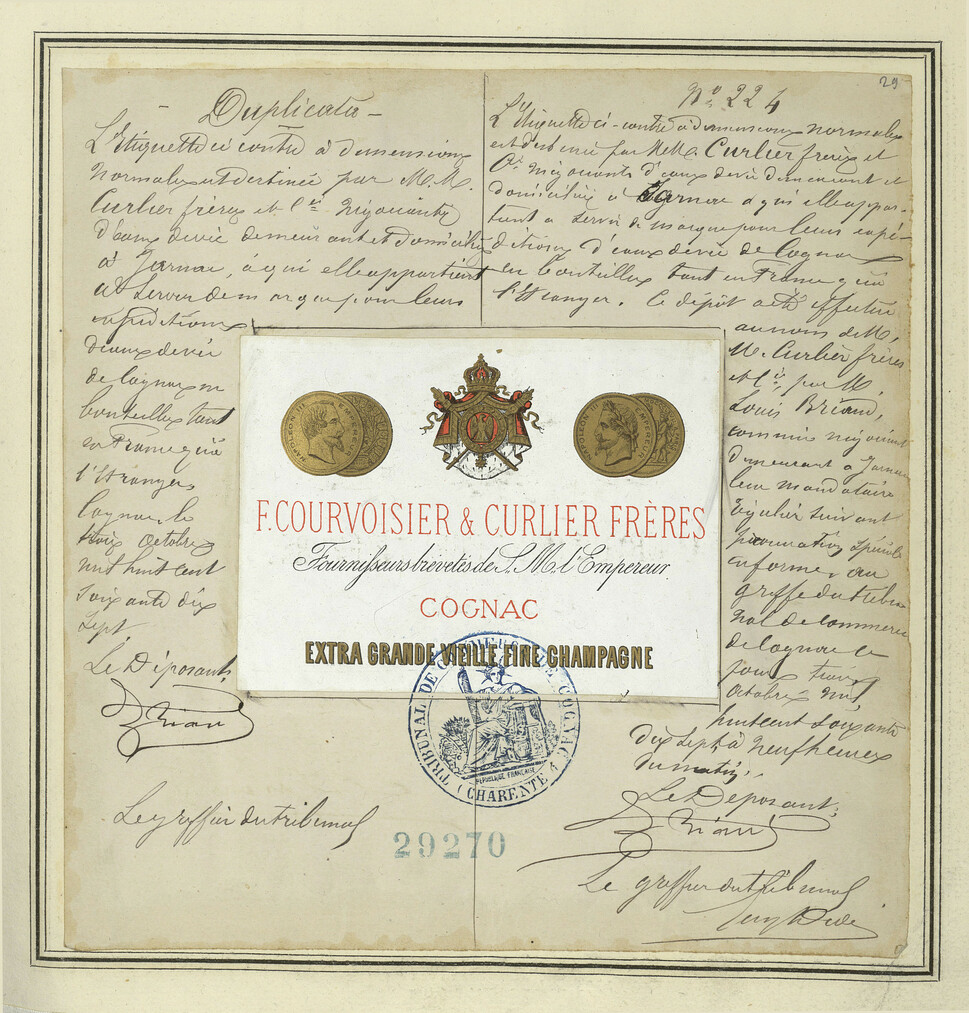 29
Duplicata
L'Etiquette ci contre à dimensions
normales est destinée par M.M.
Curlier frères et Cie négociants
d'eaux de vie demeurant et domiciliés
à Jarnac, à qui elle appartient
à Servir de marque pour leurs
expéditions
d'eaux de vie
de Cognac en
bouteilles tant
en France qu'à
l'Etranger.
Cognac le
trois Octobre
mil huit cent
soixante dix
Sept.
Le Déposant
Briand
Le greffier du tribunal
No. 224
L'Etiquette ci-contre à dimensions normales
est destinée par M.M. Curlier frères et
Cie négociants d'eaux de vie demeurant et
domiciliés à Jarnac à qui elle appar-
tient à servir de marque pour leurs expé-
ditions d'eaux de vie de Cognac
en bouteilles tant en France qu'à
l'Etranger. Ce dépôt a été effectué
au nom de M.
M. Curlier frères
et Cie, par M.
Louis Briand,
commis négociant
demeurant à Jarnac
leur mandataire
régulier suivant
procuration spéciale
en forme, au
greffe du tribu-
nal de commerce
de Cognac le
jour trois
Octobre mil
huit cent soixante
dix sept à neuf heures
du matin.
Le Déposant,
Briand
Le greffier du tribunal
NAPOLEON III EMPEREUR
NAPOLEON III EMPEREUR
F. COURVOISIER & CURLIER FRÈRES
Fournisseurs brevetés de S. M. l'Empereur.
COGNAC
EXTRA GRANDE VIEILLE FINE CHAMPAGNE
TRIBUNAL DE COMMERCE DE COGNAC
REPUBLIQUE FRANÇAISE
(CHARENTE)
29270